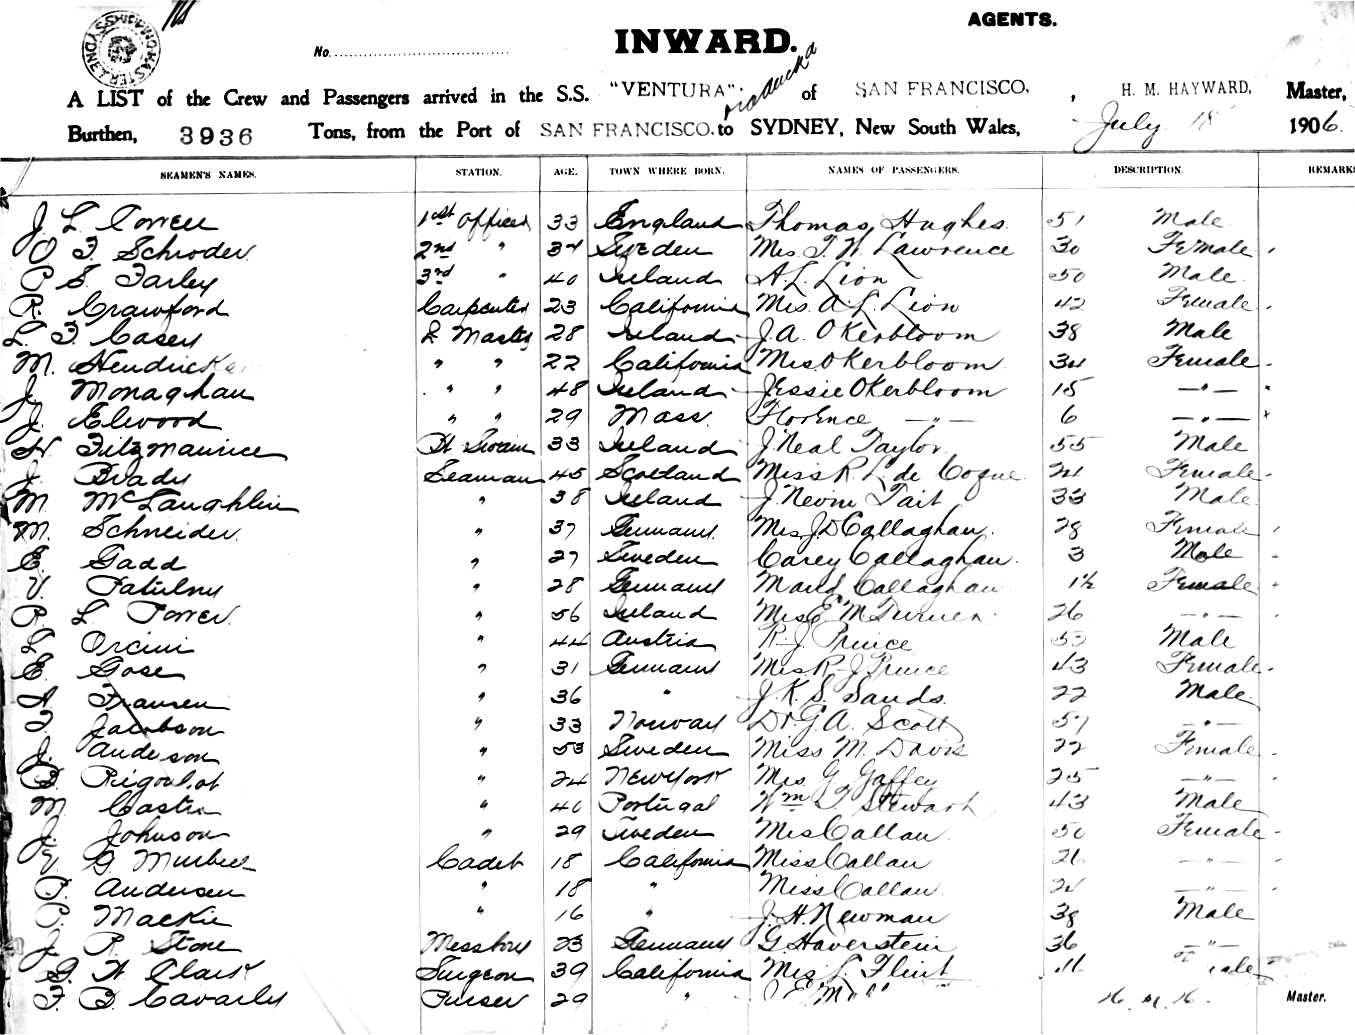 SHIPPING MASTER SYDNEY
AGENTS.
No.
INWARD.
A LIST of the Crew and Passengers arrived in the S.S. "VENTURA". of SAN FRANCISCO, , H. M. HAYWARD, Master,
Burthen, 3936 Tons, from the Port of SAN FRANCISCO. to SYDNEY, New South Wales, July 18 1906.
SEAMEN'S NAMES. STATION. AGE. TOWN WHERE BORN. NAMES OF PASSENGERS. DESCRIPTION. REMARKS
J. L. 1st Officer 33 England Thomas Hughes 51 Male
O F. Schroder 2nd " 34 Sweden Mrs. T. W. Lawrence 30 Female
P S. Farley 3rd " 40 Ireland A. L. Lion 50 Male
R. Crawford Carpenter 23 California Mrs. A. L. Lion 42 Female
L. F. Casey Q Master 28 Ireland J. A. Okerbloom 38 Male
M. " " 22 California Mrs Okerbloom 34 Female
J. Monaghan " " 48 Ireland Jessie Okerbloom 15 — " —
J. Elwood " " 29 Mass. Florence — " — 6 — " —
H. Fitzmaurice Bt Swain 33 Ireland J. Neal Taylor 55 Male
J. Brady Seaman 45 Scotland Miss R. L. de Cogue 24 Female
M. McLaughlin " 38 Ireland J. Nevin Tait 33 Male
M. Schneider " 37 Germany Mrs. J D Callaghan 28 Female
E. Gadd " 27 Sweden Carey Callaghan 3 Male
V. " 28 Germany Callaghan 1½ Female
R. L " 56 Ireland Mrs E M Turner 26 — " —
L. Orcini " 44 Austria R. J. Prince 53 Male
E. Gose " 31 Germany Mrs R. J. Prince 43 Female
A. Fransen " 36 " J. K. S. Sands 22 Male
T. Jacobson " 33 Norway Dr. G. A. Scott 57 — " —
J. Anderson " 53 Sweden Miss M. Davis 22 Female
B. " 24 New York Mrs G. Gaffey 25 — " —
M. " 40 Portugal Wm T Stewart 43 Male
J. Johnson " 29 Sweden Mrs Callan 50 Female
G. Cadet 18 California Miss Callan 26 — " —
P. Andersen " 18 " Miss Callan 24 — " —
P. Mackie " 16 " J. H. Newman 38 Male
J. R. Stone Messboy 23 Germany G. Haverstein 36 — " —
G. H. Clark Surgeon 39 California Mrs. L. Flint
F. B. Cavarly Purser 29 " Master.